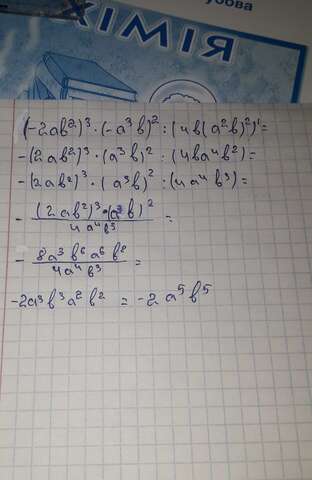 убова
ХІМІЯ
(-2ab²)³·(-a³b)²:(4b(a²b)²)¹=
-(2ab²)³·(a³b)²:(4ba⁴b²)=
-(2ab²)³·(a³b)²:(4a⁴b³)=
-(2ab²)³·(a³b)²/4a⁴b³=
-8a³b⁶a⁶b²/4a⁴b³=
-2a³b³a²b²=-2a⁵b⁵